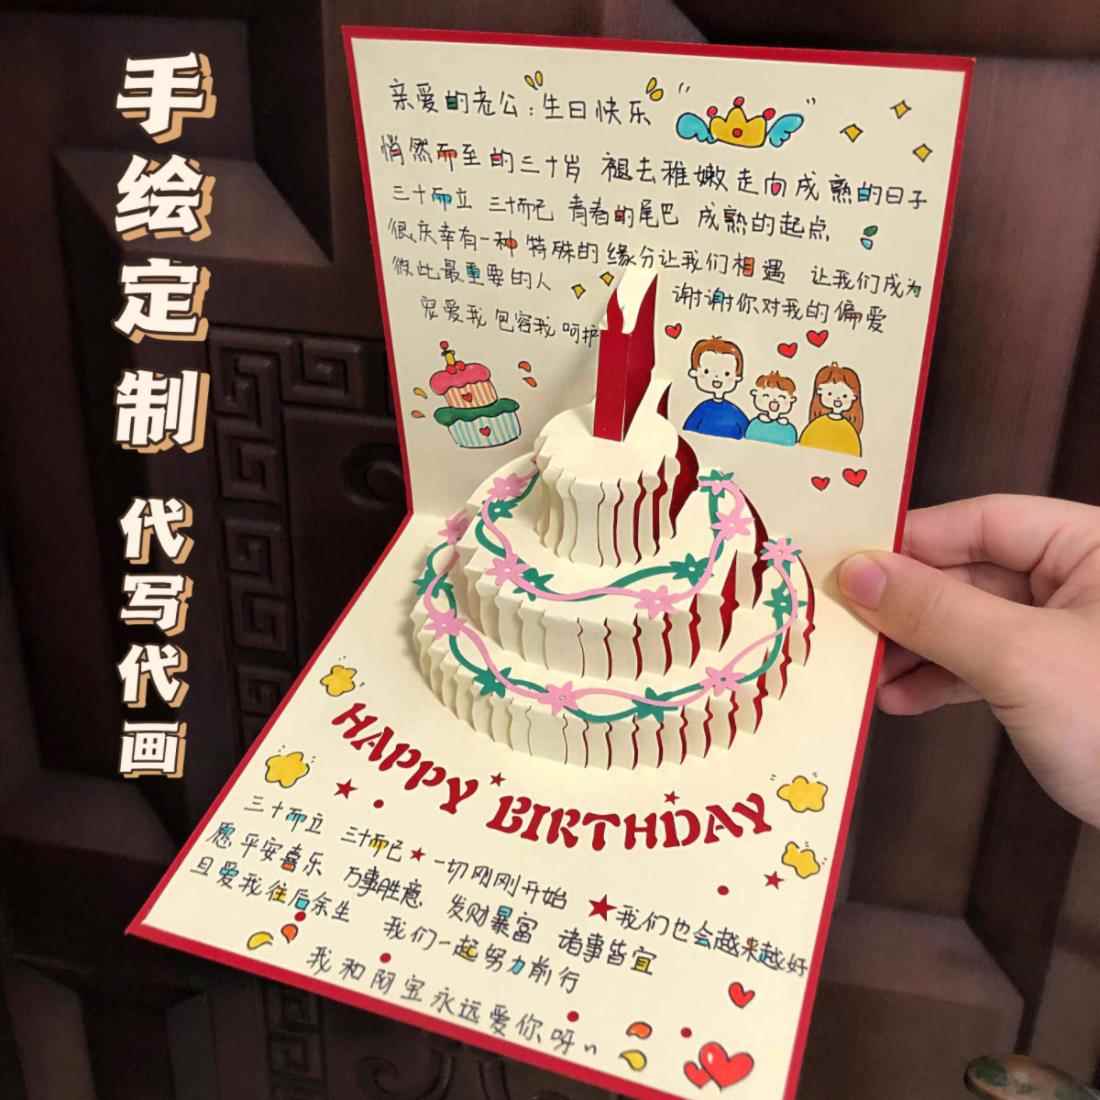 手绘定制 代写代画
亲爱的老公:生日快乐
悄然而至的三十岁 褪去稚嫩走向成熟的日子
三十而立 三十而已 青春的尾巴 成熟的起点
很庆幸有一种特殊的缘分让我们相遇 让我们成为
彼此最重要的人 谢谢你对我的偏爱
宠爱我 包容我 呵护
HAPPY BIRTHDAY
三十而立 三十而已 一切刚刚开始 我们也会越来越好
愿平安喜乐 万事胜意 发财暴富 诸事皆宜
且爱我往后余生 我们一起努力前行
我和阿宝永远爱你呀